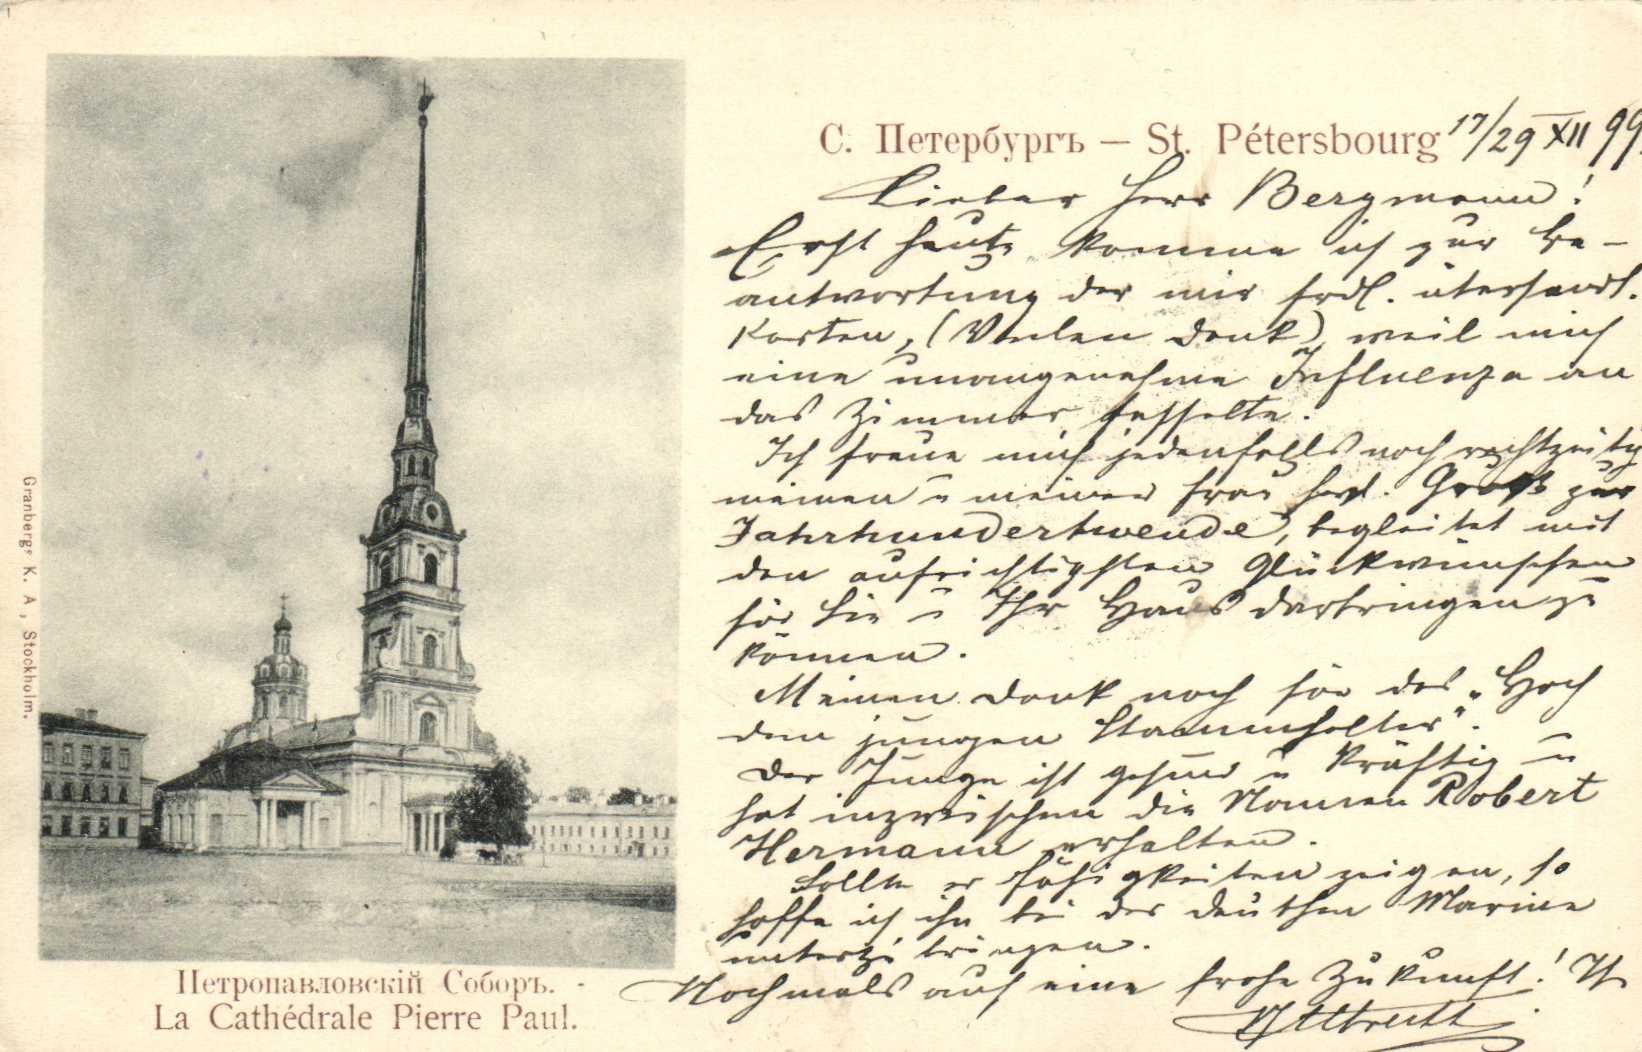 С. Петербургъ — St. Pétersbourg 17/29 XII 99.
Lieber Herr Bergmann!
Erst heute komme ich zur Be-
antwortung der mir frdl. übersandt.
Karten, (Vielen Dank), weil mich
eine unangenehme Influenza an
das Zimmer fesselte.
Ich freue mich jedenfalls noch rechtzeitig
meinen u meiner Frau herzl. Gruß zur
Jahrhundertwende, begleitet mit
den aufrichtigsten Glückwünschen
für Sie u Ihr Haus darbringen zu
können.
Meinen Dank noch für das „Hoch
dem jungen Stammhalter“.
Der Junge ist gesund u kräftig u
hat inzwischen die Namen Robert
Hermann erhalten.
Sollte er Fähigkeiten zeigen, so
hoffe ich ihn bei der deutschen Marine
unterzubringen.
Nochmals auf eine frohe Zukunft! Ihr
Петропавловскій Соборъ.
La Cathédrale Pierre Paul.
Granbergs K. A., Stockholm.